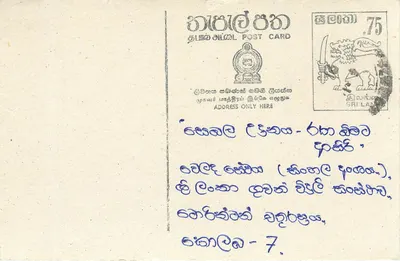 තැපැල් පත
தபால் அட்டை POST CARD
ශ්‍රී ලංකා
.75
ලිපිනය පමණක් මෙහි ලියන්න
முகவரி மாத்திரம் இங்கே எழுதுக
ADDRESS ONLY HERE
SRI LANKA
"සොබා උදානය - රසා හිමට
ආසිරි"
වෙළඳ සේවය (සිංහල අංශය),
ශ්‍රී ලංකා ගුවන් විදුලි සංස්ථාව,
ටොරින්ටන් චතුරශ්‍රය,
කොළඹ - 7.